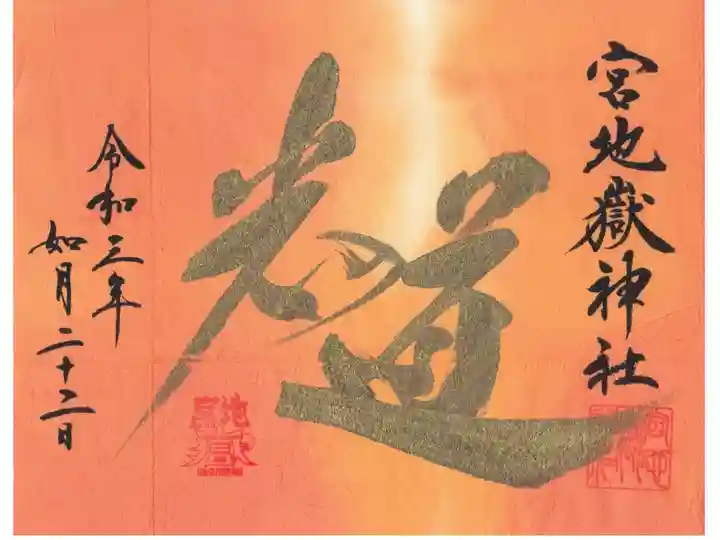 宮地嶽神社
光の道
令和三年
如月二十二日